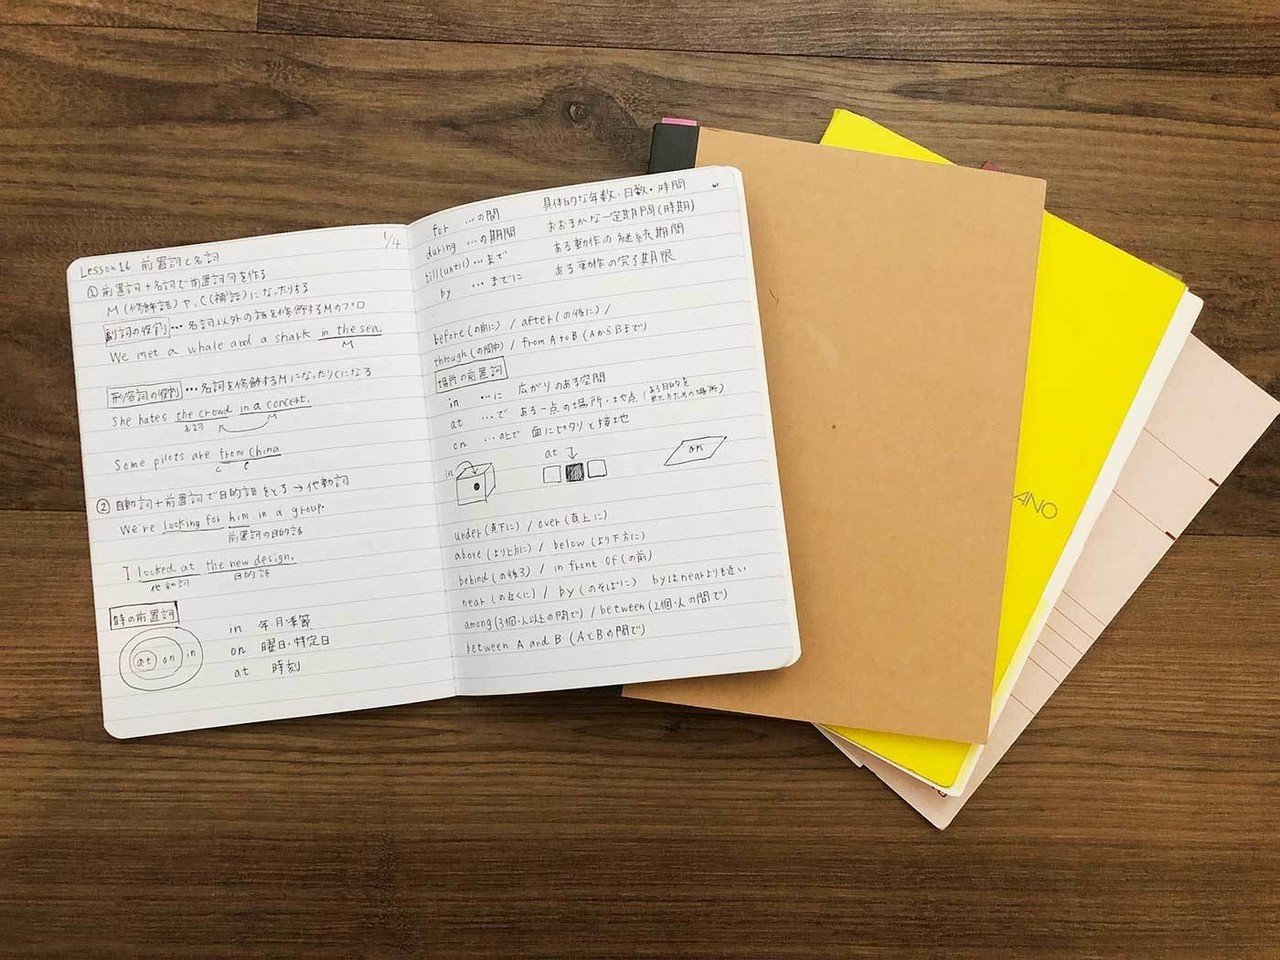 1/4
Lesson16 前置詞と名詞
① 前置詞+名詞で前置詞句を作る
M(修飾語)や、C(補語)になったりする
副詞の役割…名詞以外の語を修飾するMのプロ
We met a whale and a shark in the sea.
M
形容詞の役割…名詞を修飾するMになったりCになる
She hates the crowd in a concert.
名詞 M
Some pilots are from China
② 自動詞+前置詞で目的語をとる→他動詞
We're looking for him in a group.
前置詞の目的語
I looked at the new design.
他動詞 目的語
時の前置詞
in 年月・季節
on 曜日・特定日
at 時刻
at on in
for …の間 具体的な年数・日数・時間
during …の期間 おおまかな一定期間(時期)
till(until)…まで ある動作の継続期間
by …までに ある動作の完了期限
before(の前に) / after(の後に) /
through(の間中) / from A to B (AからBまで)
場所の前置詞
in …に 広がりのある空間
at …で ある一点の場所・地点(ある目的を果たすための場所)
on …の上で 面にピタリと接地
in at on
under(真下に) / over(真上に)
above(より上方に) / below(より下方に)
behind(の後ろ) / in front of(の前)
near(の近くに) / by(のそばに) byはnearよりも近い
among(3個・人以上の間で) / between(2個・人の間で)
between A and B (AとBの間で)
ANO